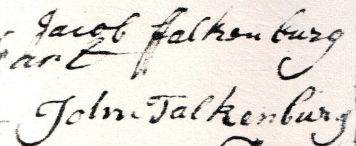 Jacob ffalkenburg
John Falkenburg